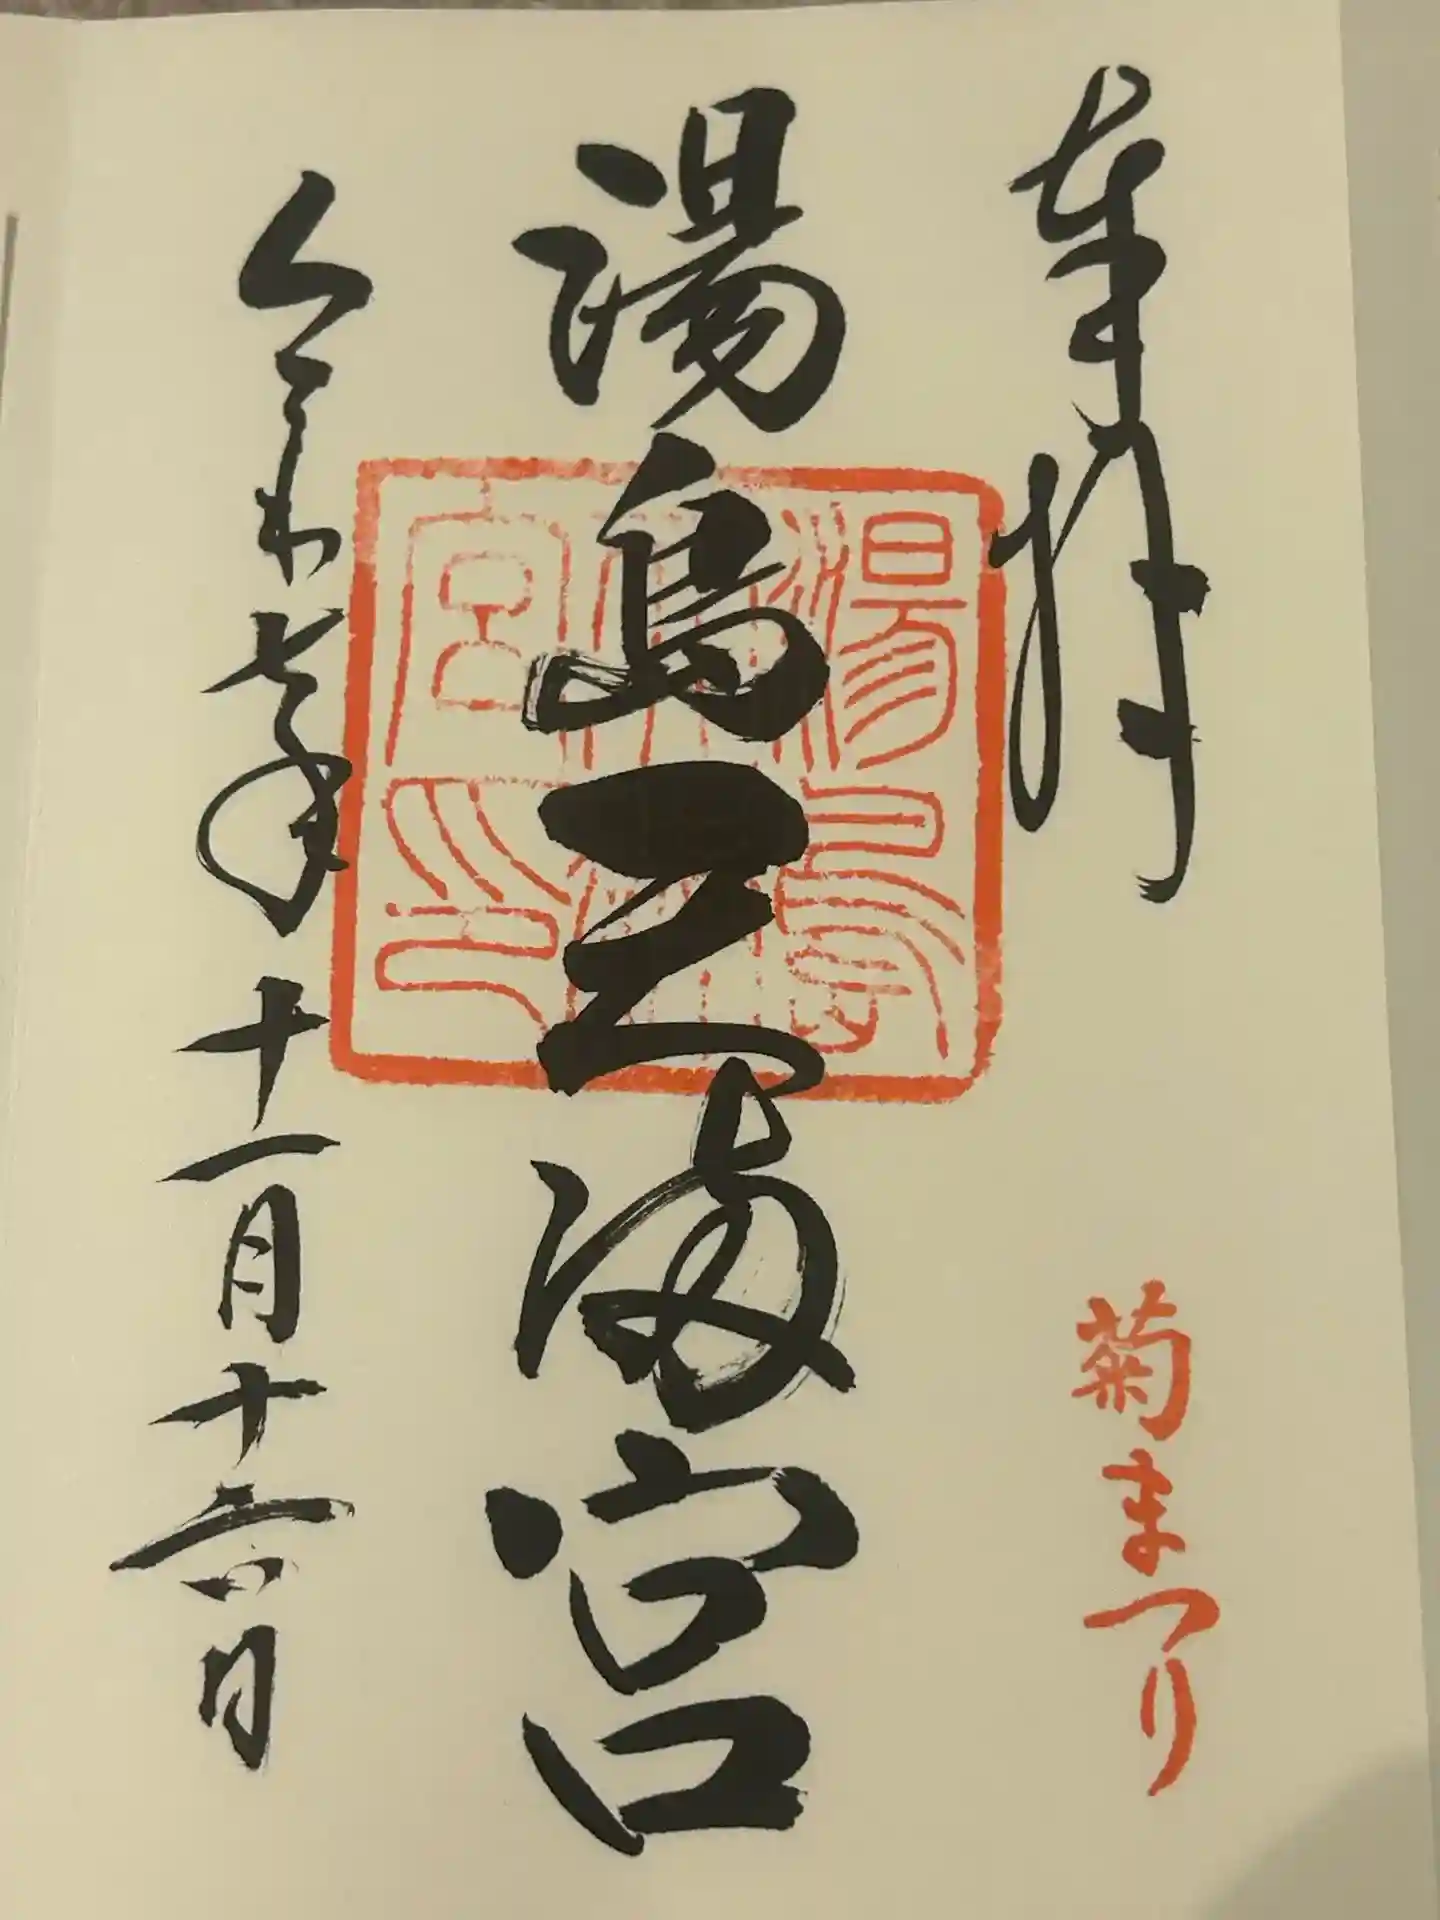 奉拝
菊まつり
湯島天満宮
令和七年十一月十六日